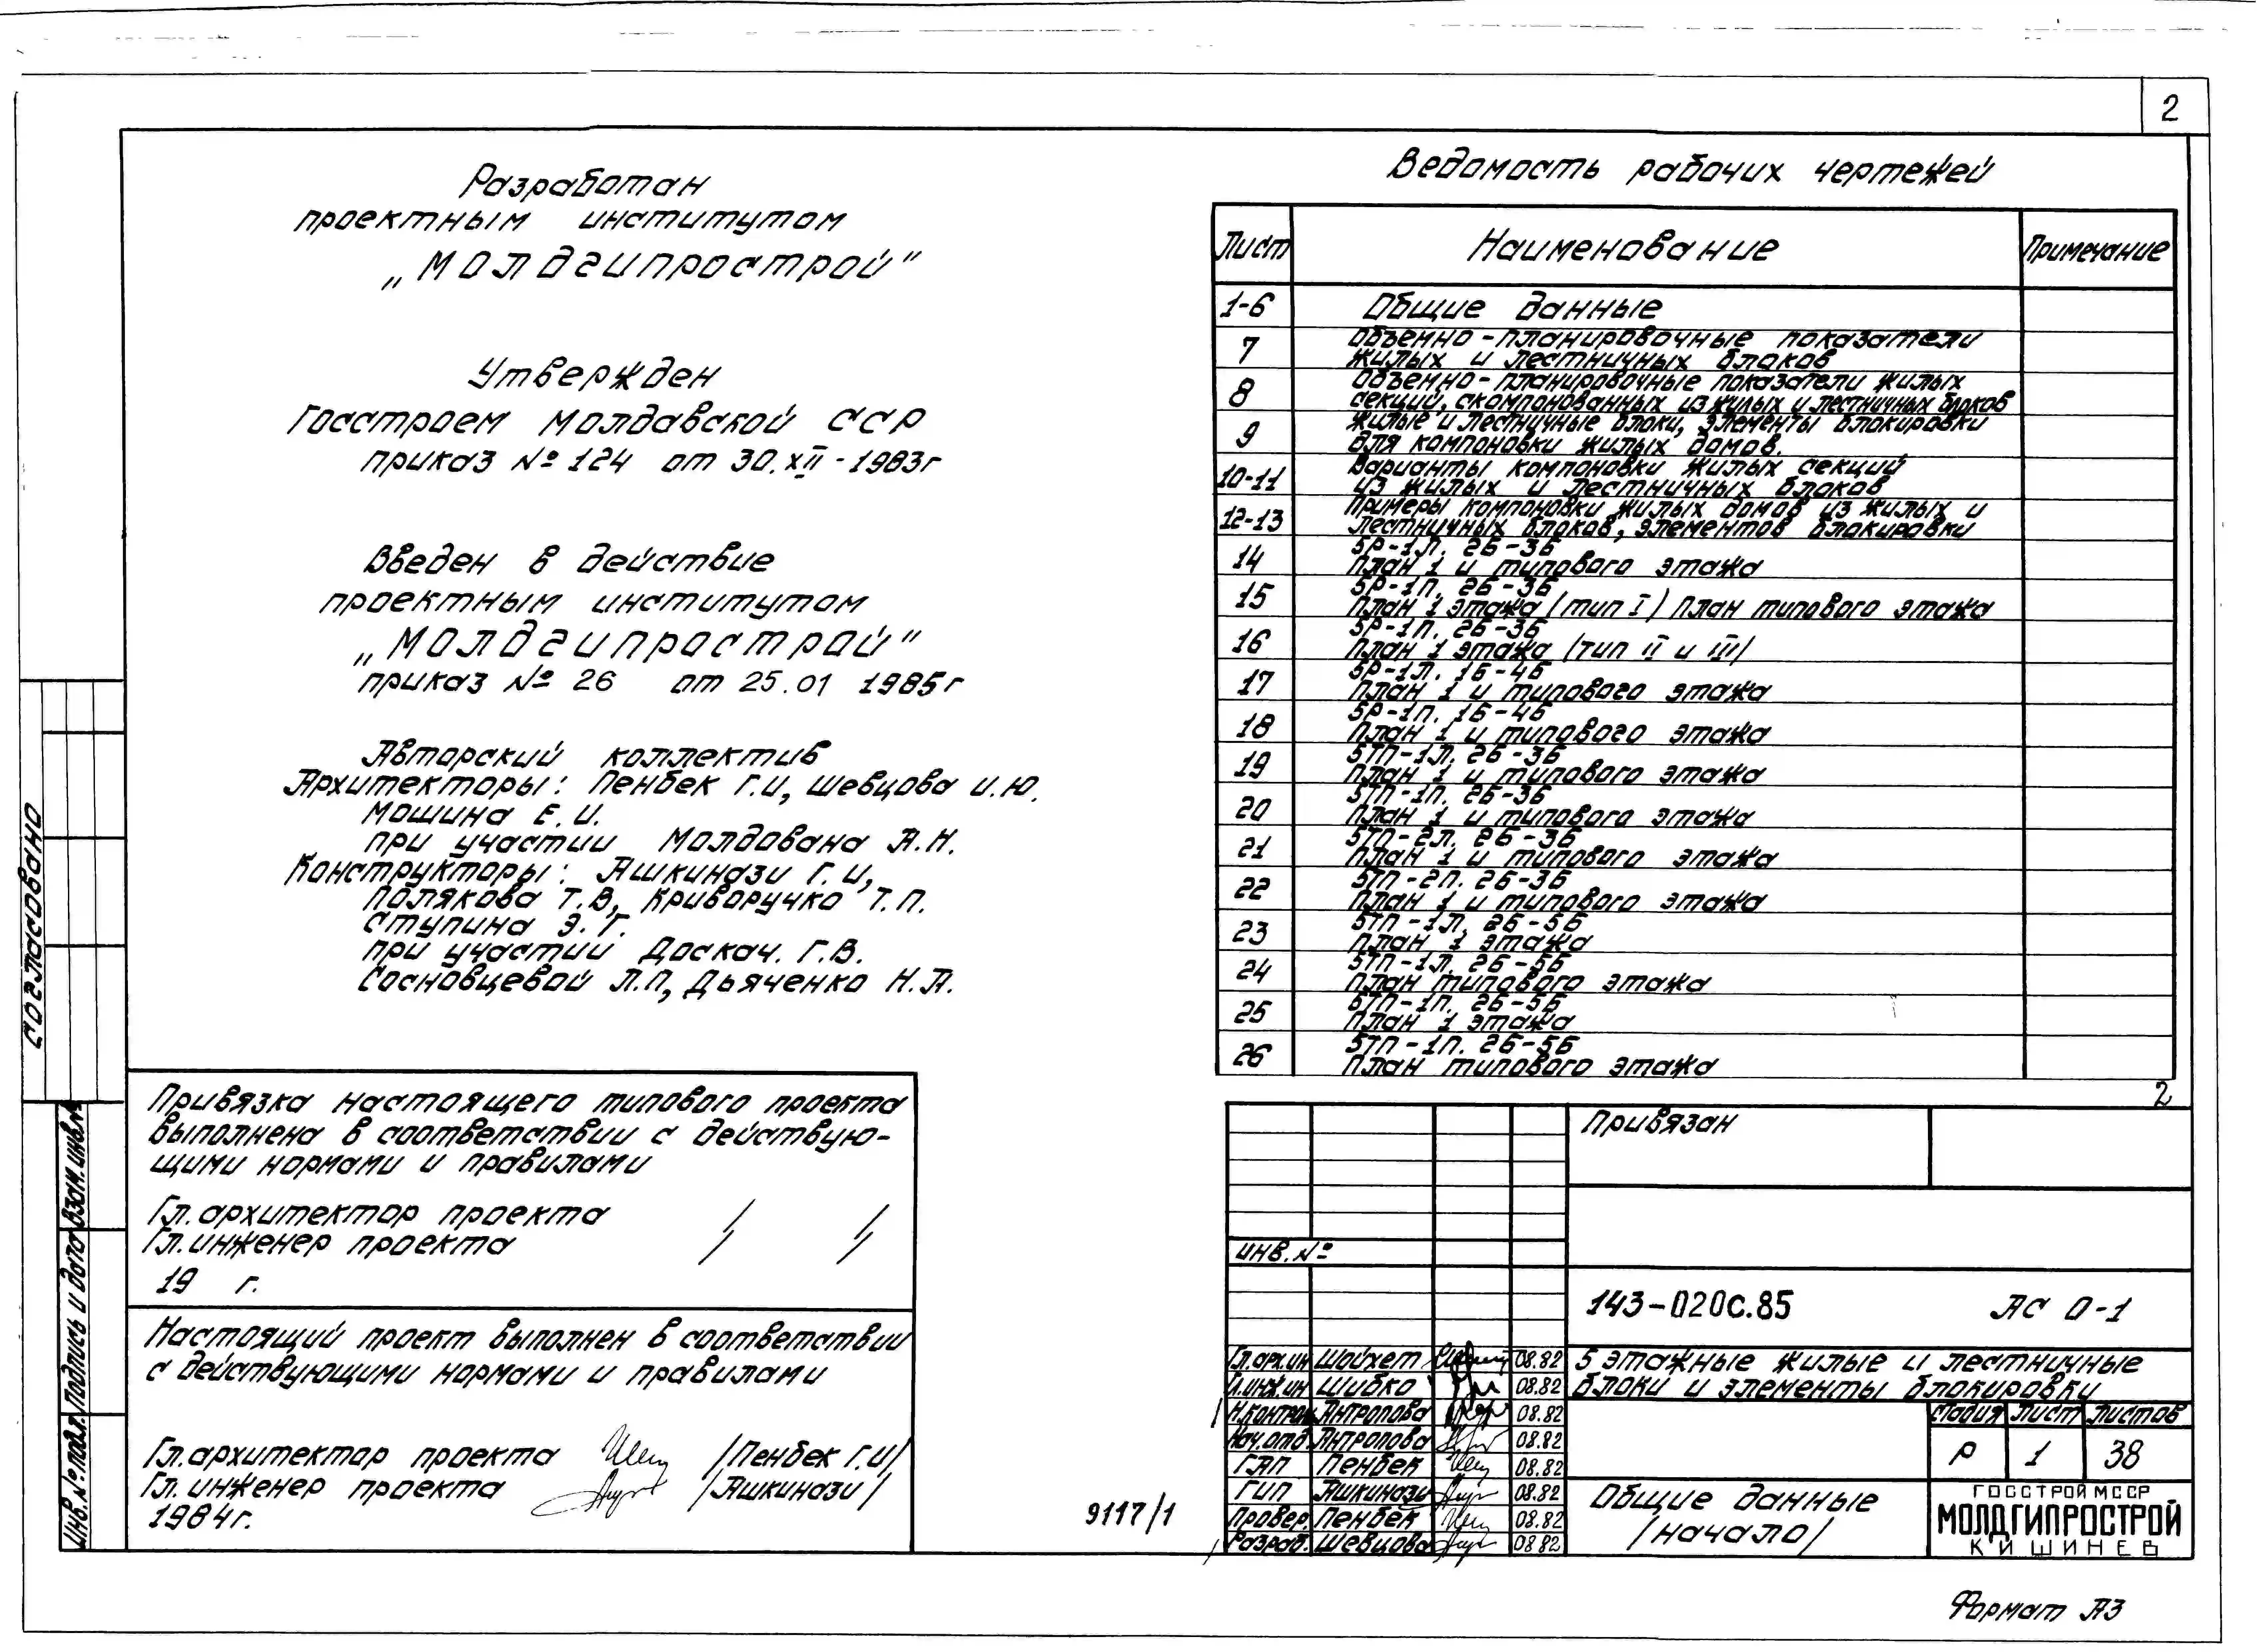 2
Разработан
проектным институтом
„Молдгипрострой"
Утвержден
Госстроем Молдавской ССР
приказ № 124 от 30.XII-1983г
Введен в действие
проектным институтом
„Молдгипрострой"
приказ № 26 от 25.01 1985г
Авторский коллектив
Архитекторы: Пенбек Г.И, Шевцова И.Ю.
Мошина Е.И.
при участии Молдована А.Н.
Конструкторы: Яшкинази Г.И,
Полякова Т.В, Криворучко Т.П.
Ступина Э.Г.
при участии Доскач. Г.В.
Сосновцевой Л.П, Дьяченко Н.А.
Привязка настоящего типового проекта
выполнена в соответствии с действую-
щими нормами и правилами
Гл. архитектор проекта / /
Гл. инженер проекта / /
19 г.
Настоящий проект выполнен в соответствии
с действующими нормами и правилами
Гл. архитектор проекта /Пенбек Г.И/
Гл. инженер проекта /Яшкинази/
1984г.
Согласовано
Взам. инв.№
Подпись и дата
Инв.№ подл.
Ведомость рабочих чертежей
Лист Наименование Примечание
1-6 Общие данные
7 Объемно-планировочные показатели
жилых и лестничных блоков
8 Объемно-планировочные показатели жилых
секций, скомпонованных из жилых и лестничных блоков
9 Жилые и лестничные блоки, элементы блокировки
для компоновки жилых домов.
10-11 Варианты компоновки жилых секций
из жилых и лестничных блоков
12-13 Примеры компоновки жилых домов из жилых и
лестничных блоков, элементов блокировки
14 5Р-1Л. 2Б-3Б
План 1 и типового этажа
15 5Р-1П. 2Б-3Б
План 1 этажа (тип I) План типового этажа
16 5Р-1П. 2Б-3Б
План 1 этажа /тип II и III/
17 5Р-1Л. 1Б-4Б
План 1 и типового этажа
18 5Р-1П. 1Б-4Б
План 1 и типового этажа
19 5ТП-1Л. 2Б-3Б
План 1 и типового этажа
20 5ТП-1П. 2Б-3Б
План 1 и типового этажа
21 5ТП-2Л. 2Б-3Б
План 1 и типового этажа
22 5ТП-2П. 2Б-3Б
План 1 и типового этажа
23 5ТП-1Л. 2Б-5Б
План 1 этажа
24 5ТП-1Л. 2Б-5Б
План типового этажа
25 5ТП-1П. 2Б-5Б
План 1 этажа
26 5ТП-1П. 2Б-5Б
План типового этажа
2
Привязан
инв. №
143-020с.85 АС 0-1
Гл.арх.ин Шойхет 08.82
Гл.инж.ин Шибко 08.82
Н.контрол Антропова 08.82
Нач.отд Антропова 08.82
ГАП Пенбек 08.82
ГИП Яшкинази 08.82
Провер. Пенбек 08.82
Разраб. Шевцова 08.82
5 этажные жилые и лестничные
блоки и элементы блокировки
Стадия Лист Листов
Р 1 38
Общие данные
/начало/
ГОССТРОЙ МССР
МОЛДГИПРОСТРОЙ
КИШИНЕВ
9117/1
Формат А3